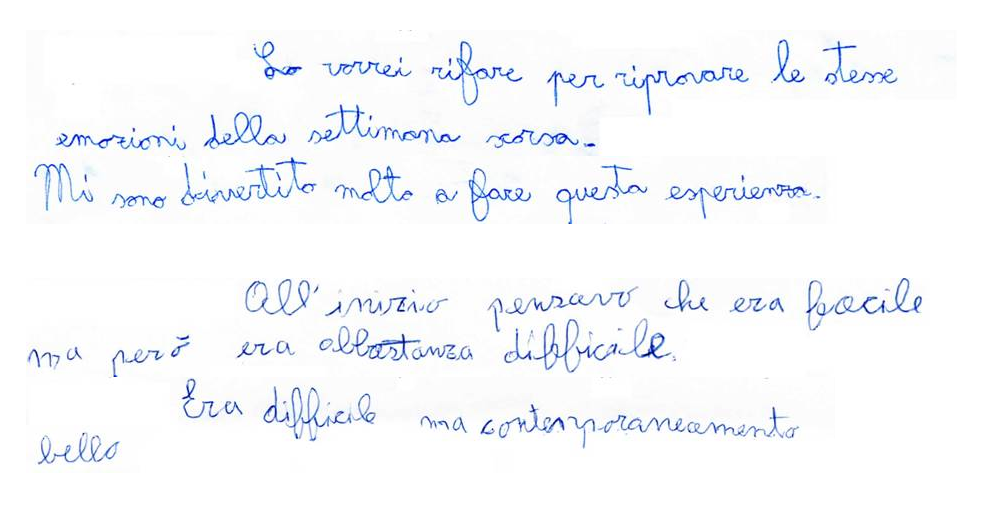 Lo vorrei rifare per riprovare le stesse
emozioni della settimana scorsa.
Mi sono divertito molto a fare questa esperienza.
All'inizio pensavo che era facile
ma però era abbastanza difficile.
Era difficile ma contemporaneamento
bello